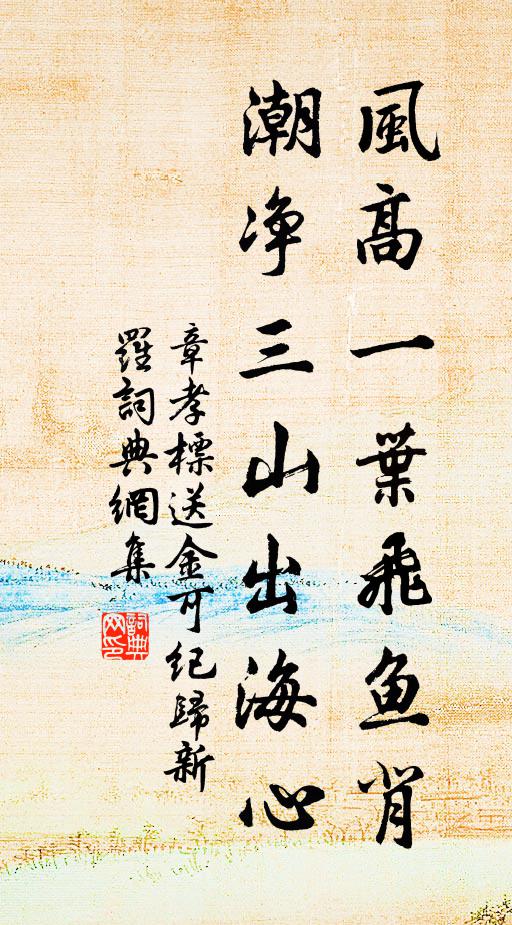 風高一葉飛魚背
潮净三山出海心
章孝標送金可紀歸新
羅詞典網集
詞典
网印